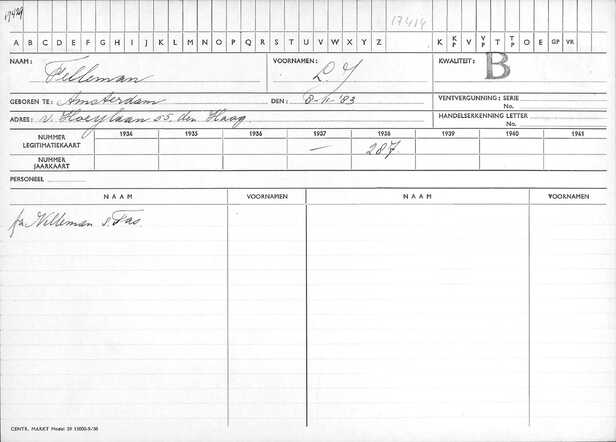 17419
17414
A B C D E F G H I J K L M N O P Q R S T U V W X Y Z K K/P V V/P T T/P O E GP VR
NAAM: Felleman VOORNAMEN: L. J KWALITEIT: B
GEBOREN TE: Amsterdam DEN: 8-11-'83 VENTVERGUNNING: SERIE No.
ADRES: v. Hoeylaan 55, den Haag. HANDELSERKENNING LETTER No.
1934 1935 1936 1937 1938 1939 1940 1941
NUMMER LEGITIMATIEKAART – 287
NUMMER JAARKAART
PERSONEEL
NAAM VOORNAMEN NAAM VOORNAMEN
fa. Velleman & Tas.
CENTR. MARKT Model 39 15000-5/38